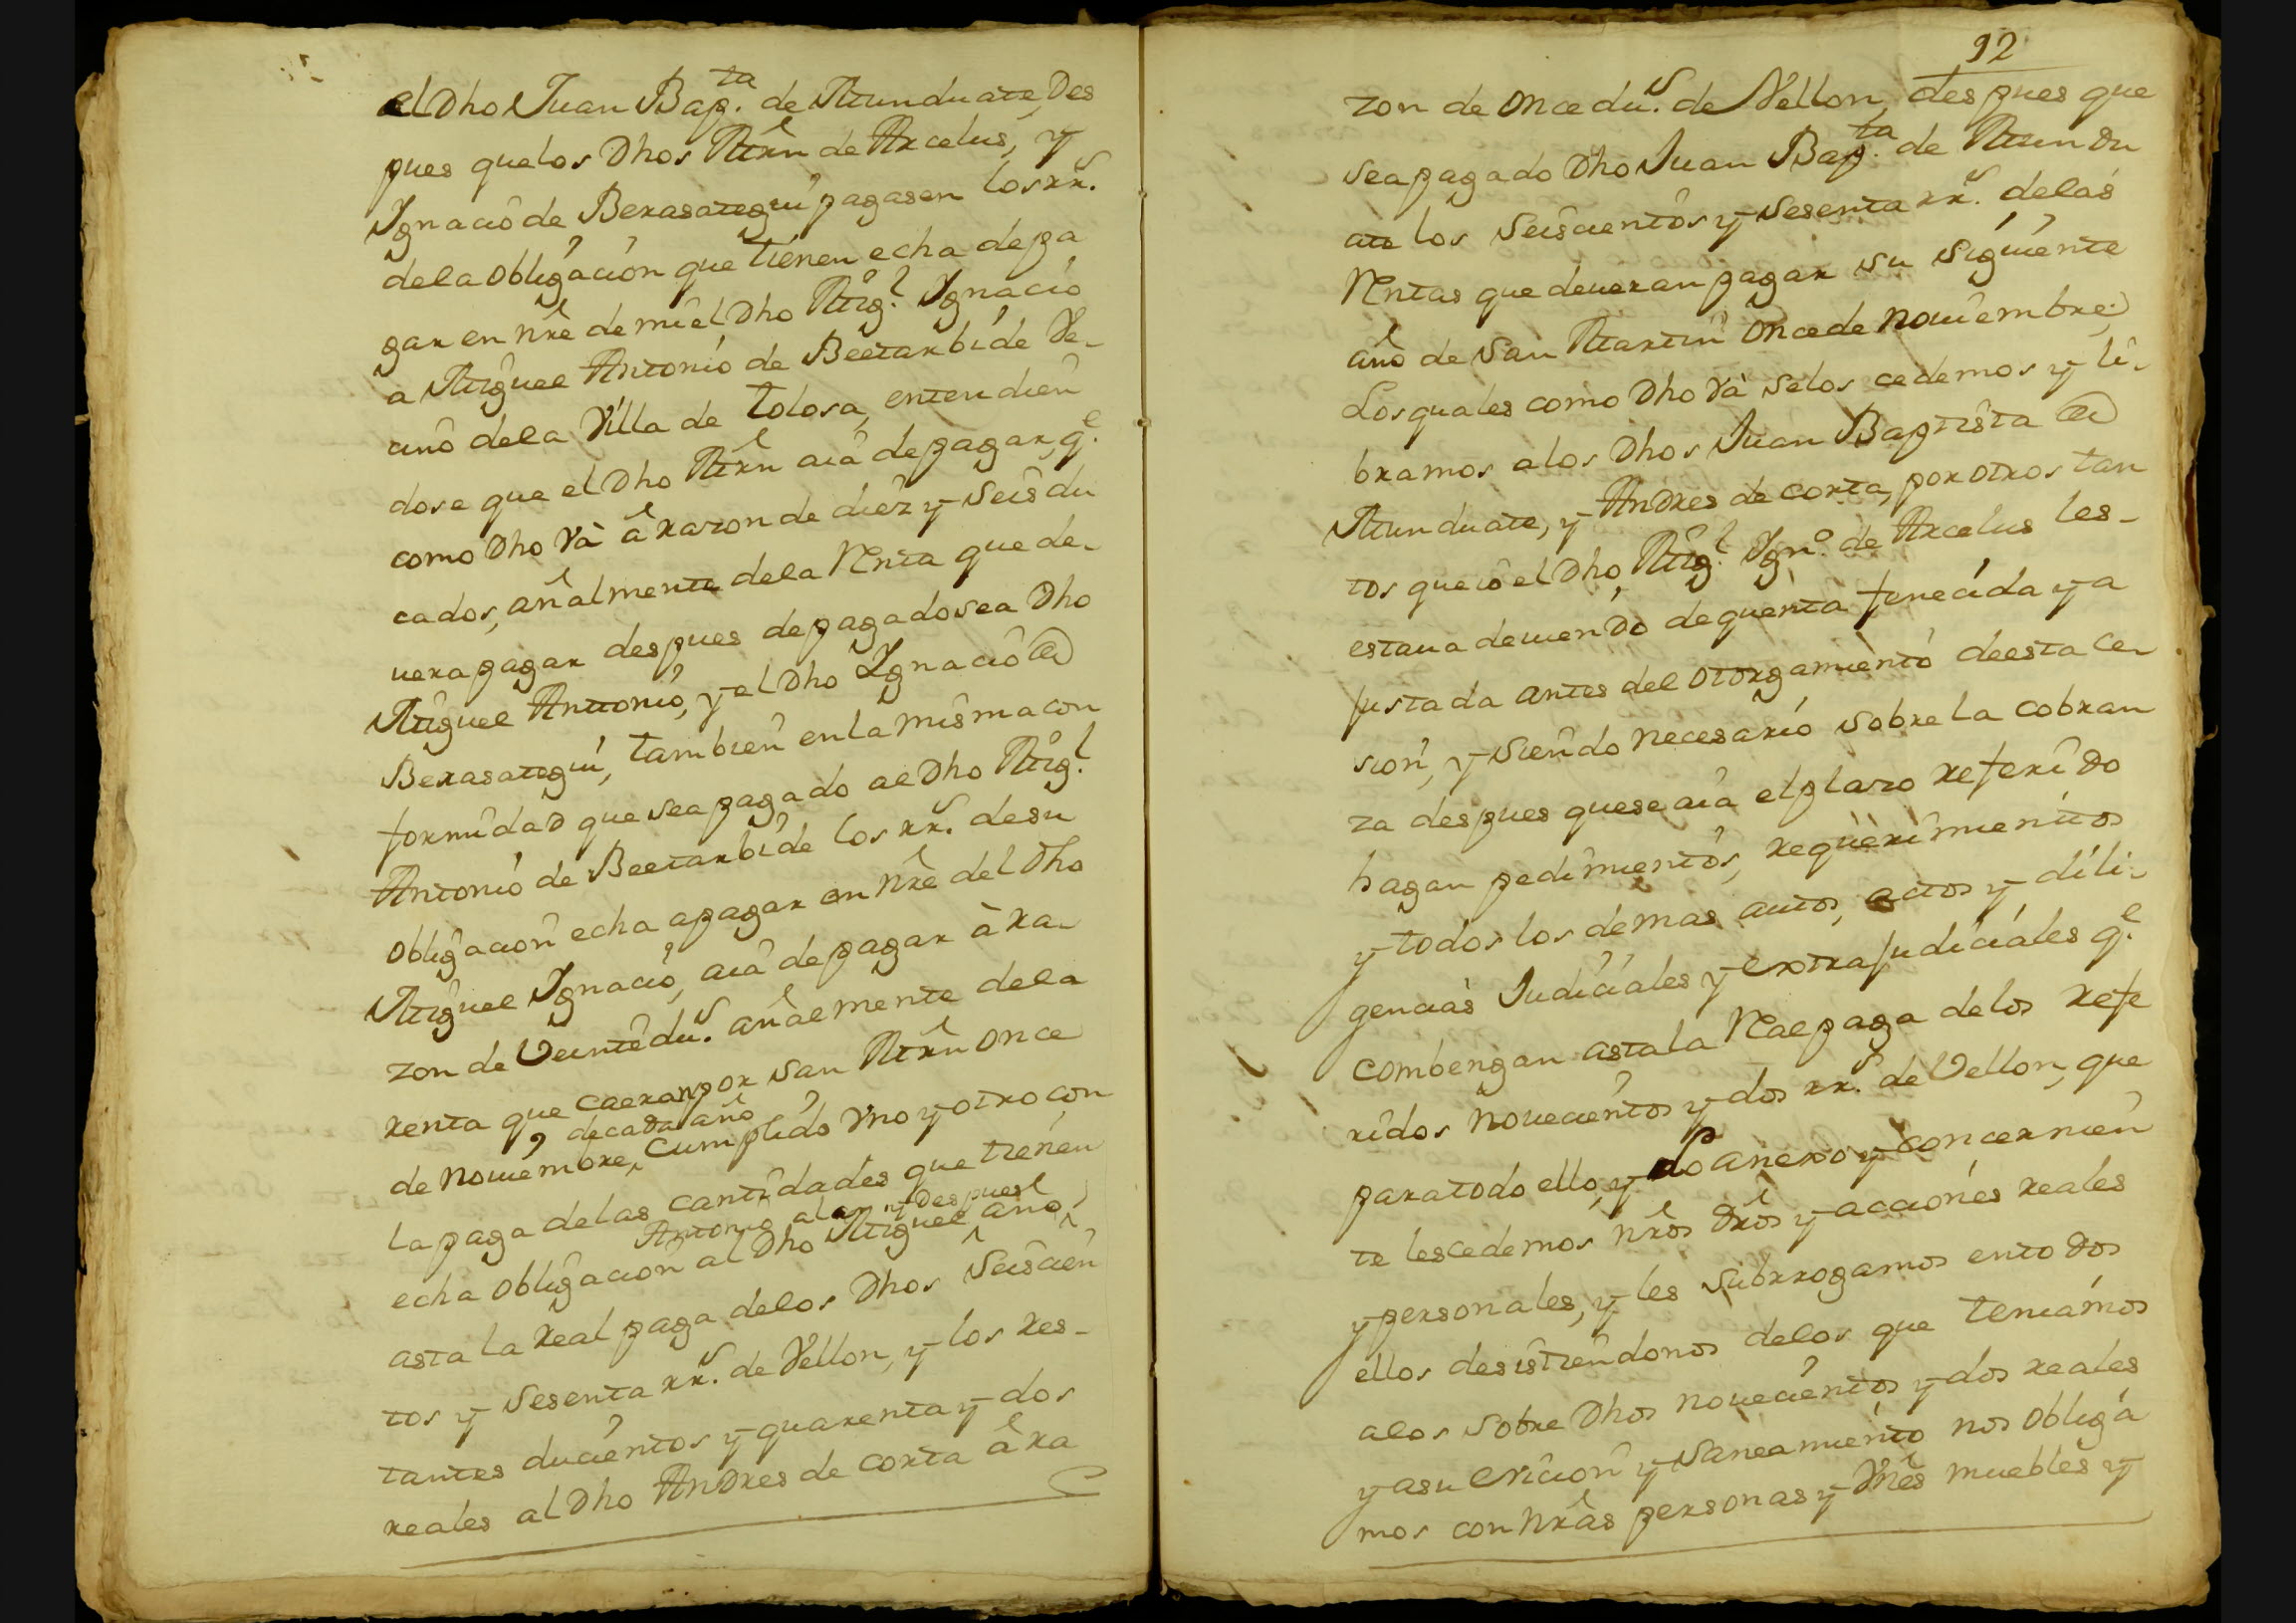 el Dho Juan Bap.ta de Munduate, Des
pues que los Dhos Mrn̂ de Arcelus, y
Ygnacio de Berasategui pagasen los rr.s
dela obligacion que tienen echa de pa
gar en nrê de mi el Dho Mig.l Ygnacio
a Miguel Antonio de Beetarbide Ve-
cino dela Villa de Tolosa, entendien
dose que el Dho Mrn̂ aia de pagar, q.e
como Dho Và â razon de diez y seis du
cados, an̂almente dela Renta que de-
uera pagar despues de pagado sea Dho
Miguel Antonio, y el Dho Ygnacio de
Berasategui, tambien en la misma con
formidad que sea pagado al Dho Mig.l
Antonio de Beetarbide los rr.s de su
obligacion echa a pagar en nrê del Dho
Miguel Ygnacio, aia de pagar à ra-
zon de Veinte du.s an̂almente dela
renta que caeran por San Mrn̂ once
de cada an̂o
de Nouiembre, Cumplido Vno y otro con
la paga delas cantidades que tienen
Antonio y despues
echa obligacion al Dho Miguel an̂o,
asta la real paga delos Dhos Seiscien
tos y Sesenta rr.s de Vellon, y los res-
tantes ducientos y quarenta y dos
reales al Dho Andres de Corta â ra
92
zon de once du.s de Vellon, despues que
sea pagado Dho Juan Bap.ta de Mundu
ate los Seiscientos y Sesenta rr.s delas
Rentas que deueran pagar su siguiente
an̂o de San Martin once de Nouiembre;
Los quales como Dho Và se los cedemos y li-
bramos a los Dhos Juan Baptista de
Munduate, y Andres de Corta, por otros tan
tos que io el Dho Mig.l Ygn.o de Arcelus les-
estaua deuiendo de quenta fenecida y a
justada antes del otorgamiento de esta ce-
sion, y siendo necesario sobre la cobran
za despues que se aia el plazo referido
hagan pedimientos, requerimientos
y todos los demas autos, actos y dili-
gencias Judiciales y extrajudiciales q.e
combengan asta la Real paga delos refe
ridos Nouecientos y dos rr.s de Vellon, que
para todo ello, y lo anexo y concernien
te les cedemos nrôs Drôs y acciones reales
y personales, y les subrrogamos en todos
ellos desistiendonos delos que teniamos
a los sobre Dhos nouecientos y dos reales
y a su eviccion y saneamiento nos obliga
mos con nrâs personas y Vnês muebles y